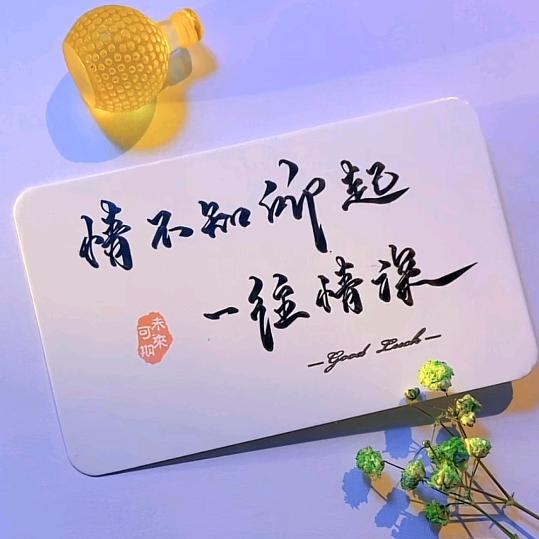 情不知所起
一往情深
未來
可期
—Good Luck—